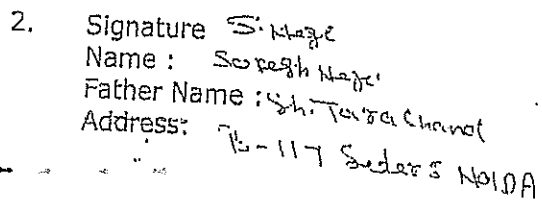 2. Signature S. Nagi
Name : Suresh Nagi
Father Name : Sh. Tara Chand
Address: -117 Sector 5 NOIDA